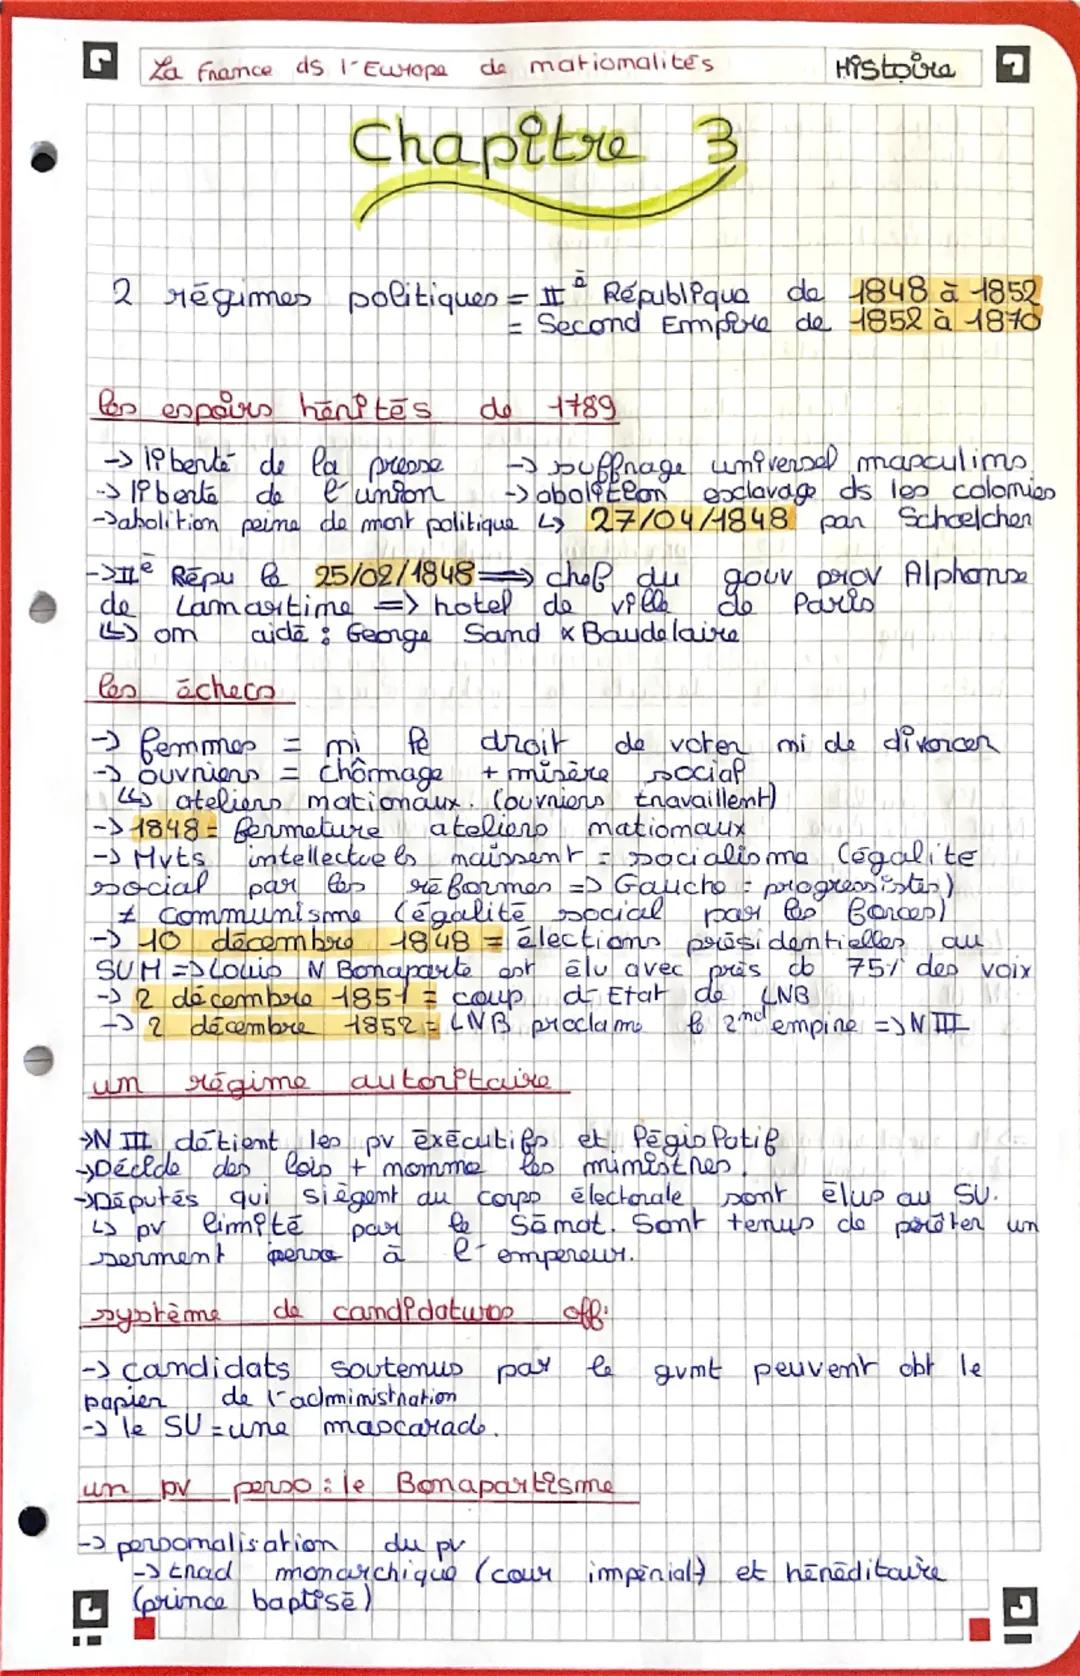 La France ds l'Europe de nationalités
Histoire
Chapitre 3
2 régimes politiques = IIè République de 1848 à 1852
= Second Empire de 1852 à 1870
les espoirs hérités de 1789
-> liberté de la presse -> suffrage universel masculims
-> liberté de l'union -> abolition esclavage ds les colonies
-> abolition peine de mort politique ↳ 27/04/1848 par Schoelcher
-> IIè Répu le 25/02/1848 => chef du gouv prov Alphonse
de Lamartime => hotel de ville de Paris
↳ om aidé : George Sand x Baudelaire
les échecs
-> femmes = ni le droit de voter ni de divorcer
-> ouvriers = chômage + misère social
↳ ateliers nationaux. (ouvriers travaillent)
-> 1848 = fermeture ateliers nationaux
-> Mvts intellectuels naissent = socialisme (égalité
social par les réformes => Gauche = progressistes)
≠ communisme (égalité social par les forces)
-> 10 décembre 1848 = élections présidentielles au
SUM => Louis N Bonaparte est élu avec près de 75% des voix
-> 2 décembre 1851 = coup d'Etat de LNB
-> 2 décembre 1852 = LNB proclame le 2nd empire => N III
um régime autoritaire
-> N III détient les pv exécutifs et législatif
-> Décide des lois + nomme les ministres.
-> Députés qui siègent au corps électorale sont élus au SU.
↳ pv limité par le Sénat. Sont tenus de prêter un
serment perso à l'empereur.
système de candidatures off:
-> candidats soutenus par le gvmt peuvent obt le
papier de l'administration
-> le SU = une mascarade.
un pv perso : le Bonapartisme
-> personnalisation du pv
-> trad monarchique (cour impérial) et héréditaire
(prince baptisé)